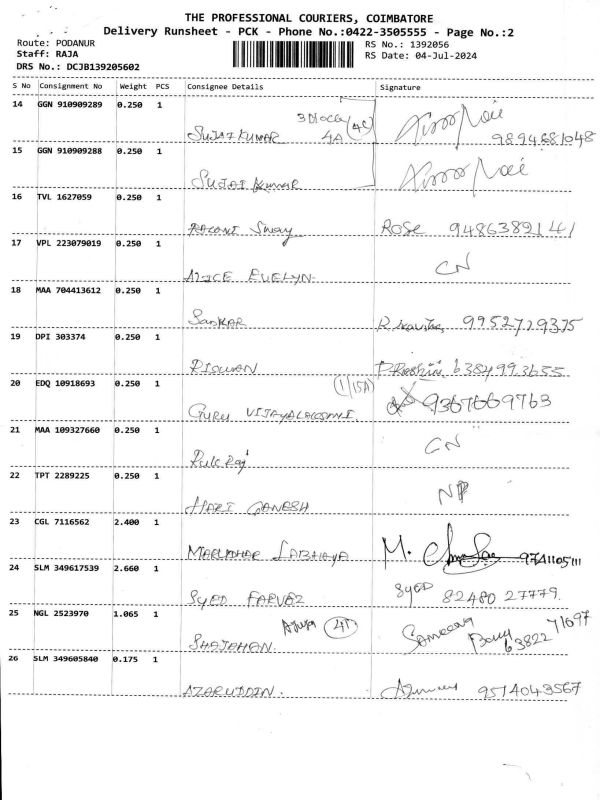 THE PROFESSIONAL COURIERS, COIMBATORE
Delivery Runsheet - PCK - Phone No.:0422-3505555 - Page No.:2
Route: PODANUR
Staff: RAJA
DRS No.: DCJB139205602
RS No.: 1392056
RS Date: 04-Jul-2024
S No Consignment No Weight PCS Consignee Details Signature
14 GGN 910909289 0.250 1
3 Block
SUJAI KUMAR 4A (4C) 9894681048
15 GGN 910909288 0.250 1
SUJAI Kumar
16 TVL 1627059 0.250 1
ROSE 9486389141
17 VPL 223079019 0.250 1
ALICE EVELYN. CN
18 MAA 704413612 0.250 1
Sankar R 9952729375
19 DPI 303374 0.250 1
RISWAN 6384993655
20 EDQ 10918693 0.250 1
(1/15A)
GURU VIJAYALAKSHMI. 9367669763
21 MAA 109327660 0.250 1
CN
22 TPT 2289225 0.250 1
HARI GANESH NP
23 CGL 7116562 2.400 1
M. 9741105111
24 SLM 349617539 2.660 1
SYED FARVEZ SYED 82480 27779.
25 NGL 2523970 1.065 1
SHAJAHAN. 63822 71097
26 SLM 349605840 0.175 1
AZARUDDIN. 9514043567